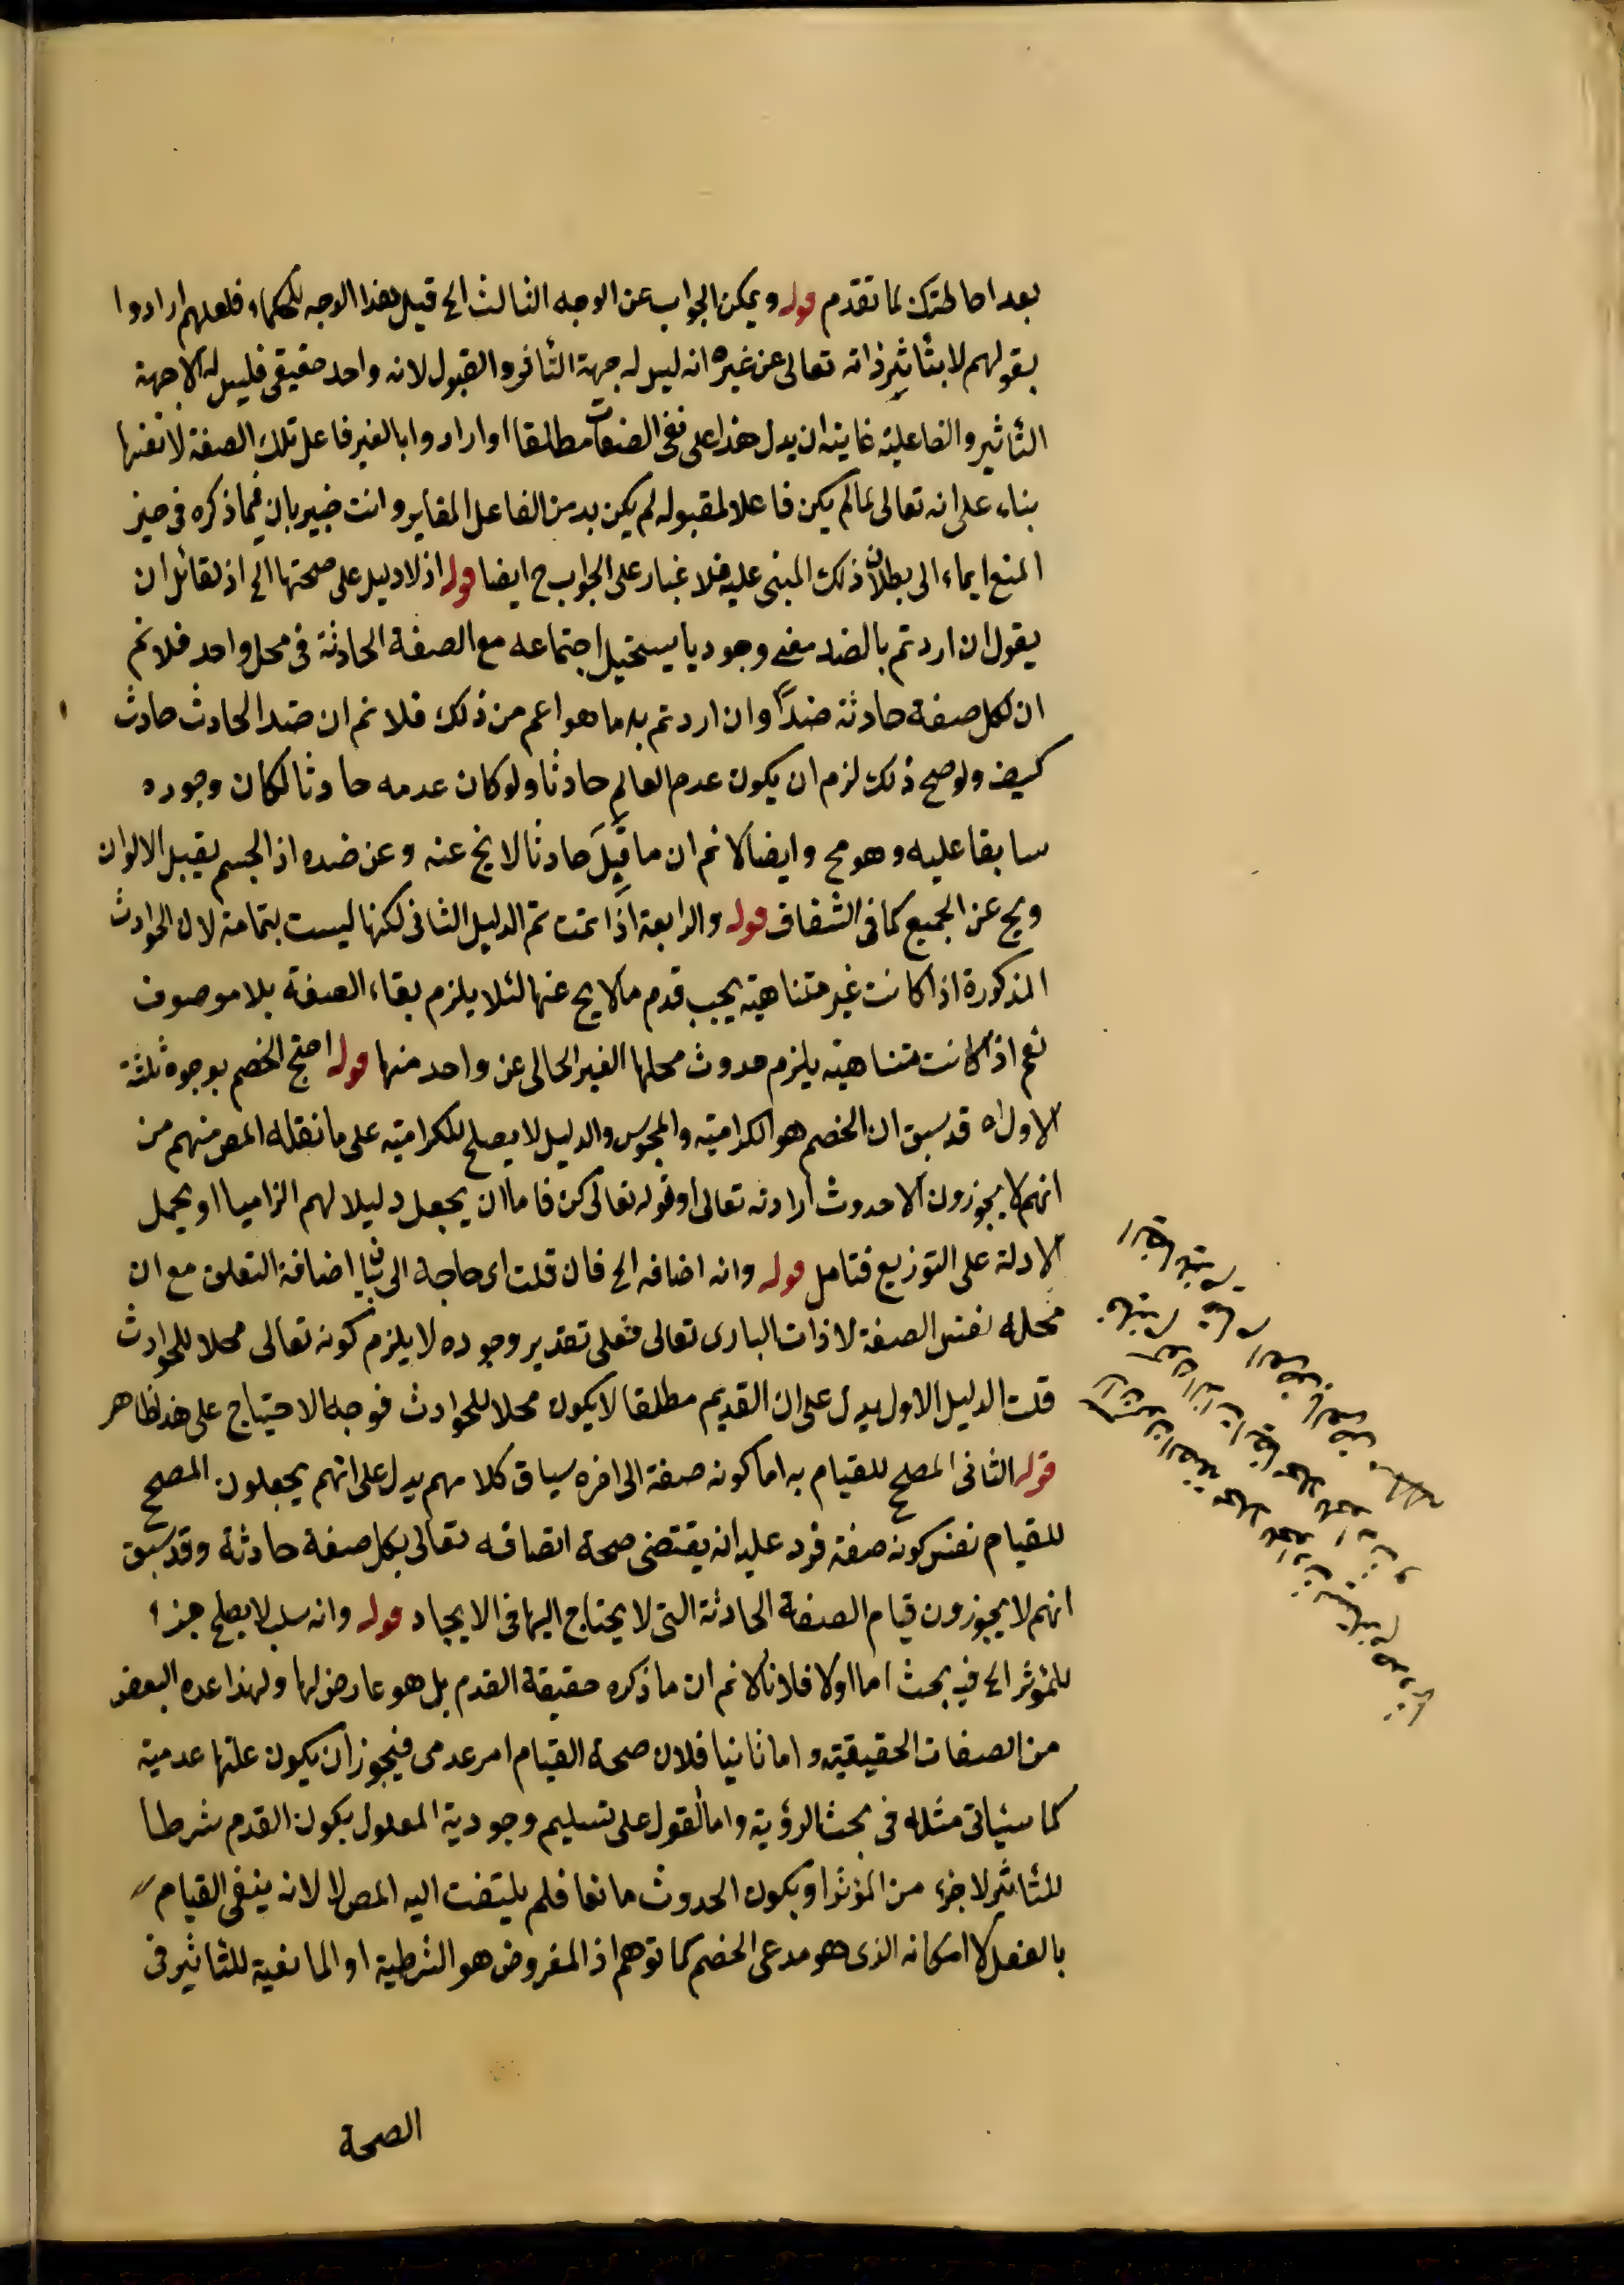 بعد احاطتك لما تقدم قوله ويمكن الجواب عن الوجه الثالث الخ قيل هذا الوجه للحكماء فلعلهم ارادوا
بقولهم لا يتأثر ذاته تعالى عن غيره انه ليس له جهة التأثر والقبول لانه واحد حقيقي فليس له الا جهة
التأثير والفاعلية غايته ان يدل هذا على نفي الصفات مطلقا او ارادوا بالغير فاعل تلك الصفة لا نفسها
بناء على انه تعالى لما لم يكن فاعلا لمقبوله لم يكن بد من الفاعل المغاير وانت خبير بان فيما ذكره في حيز
المنع ايماء الى بطلان ذلك المبنى عليه فلا غبار على الجواب ح ايضا قوله اذ لا دليل على صحتها الخ اذ لقائل ان
يقول ان اردتم بالضد معنى وجوديا يستحيل اجتماعه مع الصفة الحادثة في محل واحد فلا نم
ان لكل صفة حادثة ضدا وان اردتم به ما هو اعم من ذلك فلا نم ان ضد الحادث حادث
كيف ولو صح ذلك لزم ان يكون عدم العالم حادثا ولو كان عدمه حادثا لكان وجوده
سابقا عليه وهو مح وايضا لا نم ان ما قبل حادثا لا يخ عنه وعن ضده اذ الجسم يقبل الالوان
ويخ عن الجميع كما في الشفاف قوله والرابعة اذا تمت تم الدليل الثاني لكنها ليست بتمامة لان الحوادث
المذكورة اذا كانت غير متناهية يجب قدم ما لا يخ عنها لئلا يلزم بقاء الصفة بلا موصوف
نعم اذا كانت متناهية يلزم حدوث محلها الغير الخالى عن واحد منها قوله احتج الخصم بوجوه ثلثة
الاول اه قد سبق ان الخصم هو الكرامية والمجوس والدليل لا يصلح للكرامية على ما نقله المص منهم من
انهم لا يجوزون الا حدوث ارادته تعالى او قوله تعالى كن فاما ان يجعل دليلا لهم الزاميا او يحمل
الادلة على التوزيع فتامل قوله وانه اضافه الخ فان قلت اى حاجة الى بيان اضافة التعلق مع ان
محله نفس الصفة لا ذات البارى تعالى فعلى تقدير وجوده لا يلزم كونه تعالى محلا للحوادث
قلت الدليل الاول يدل على ان القديم مطلقا لا يكون محلا للحوادث فوجه الاحتياج على هذا ظاهر
قوله الثانى المصحح للقيام به اما كونه صفة الى اخره سياق كلامهم يدل على انهم يجعلون المصحح
للقيام نفس كونه صفة فرد عليه انه يقتضى صحة اتصافه تعالى بكل صفة حادثة وقد سبق
انهم لا يجوزون قيام الصفة الحادثة التى لا يحتاج اليها في الايجاد قوله وانه سلب لا يصلح جزءا
للمؤثر الخ فيه بحث اما اولا فلانا لا نم ان ما ذكره حقيقة القدم بل هو عارض لها ولهذا عده البعض
من الصفات الحقيقية و اما ثانيا فلان صحة القيام امر عدمى فيجوز ان يكون علتها عدمية
كما سيأتى مثله في بحث الرؤية واما القول على تسليم وجودية المعلول بكون القدم شرطا
للتأثير لا جزء من المؤثر او بكون الحدوث مانعا فلم يلتفت اليه المص لا لانه ينفى القيام
بالفعل لا امكانه الذى هو مدعى الخصم كما توهم اذ المفروض هو الشرطية او المانعية للتأثير في
الصحة